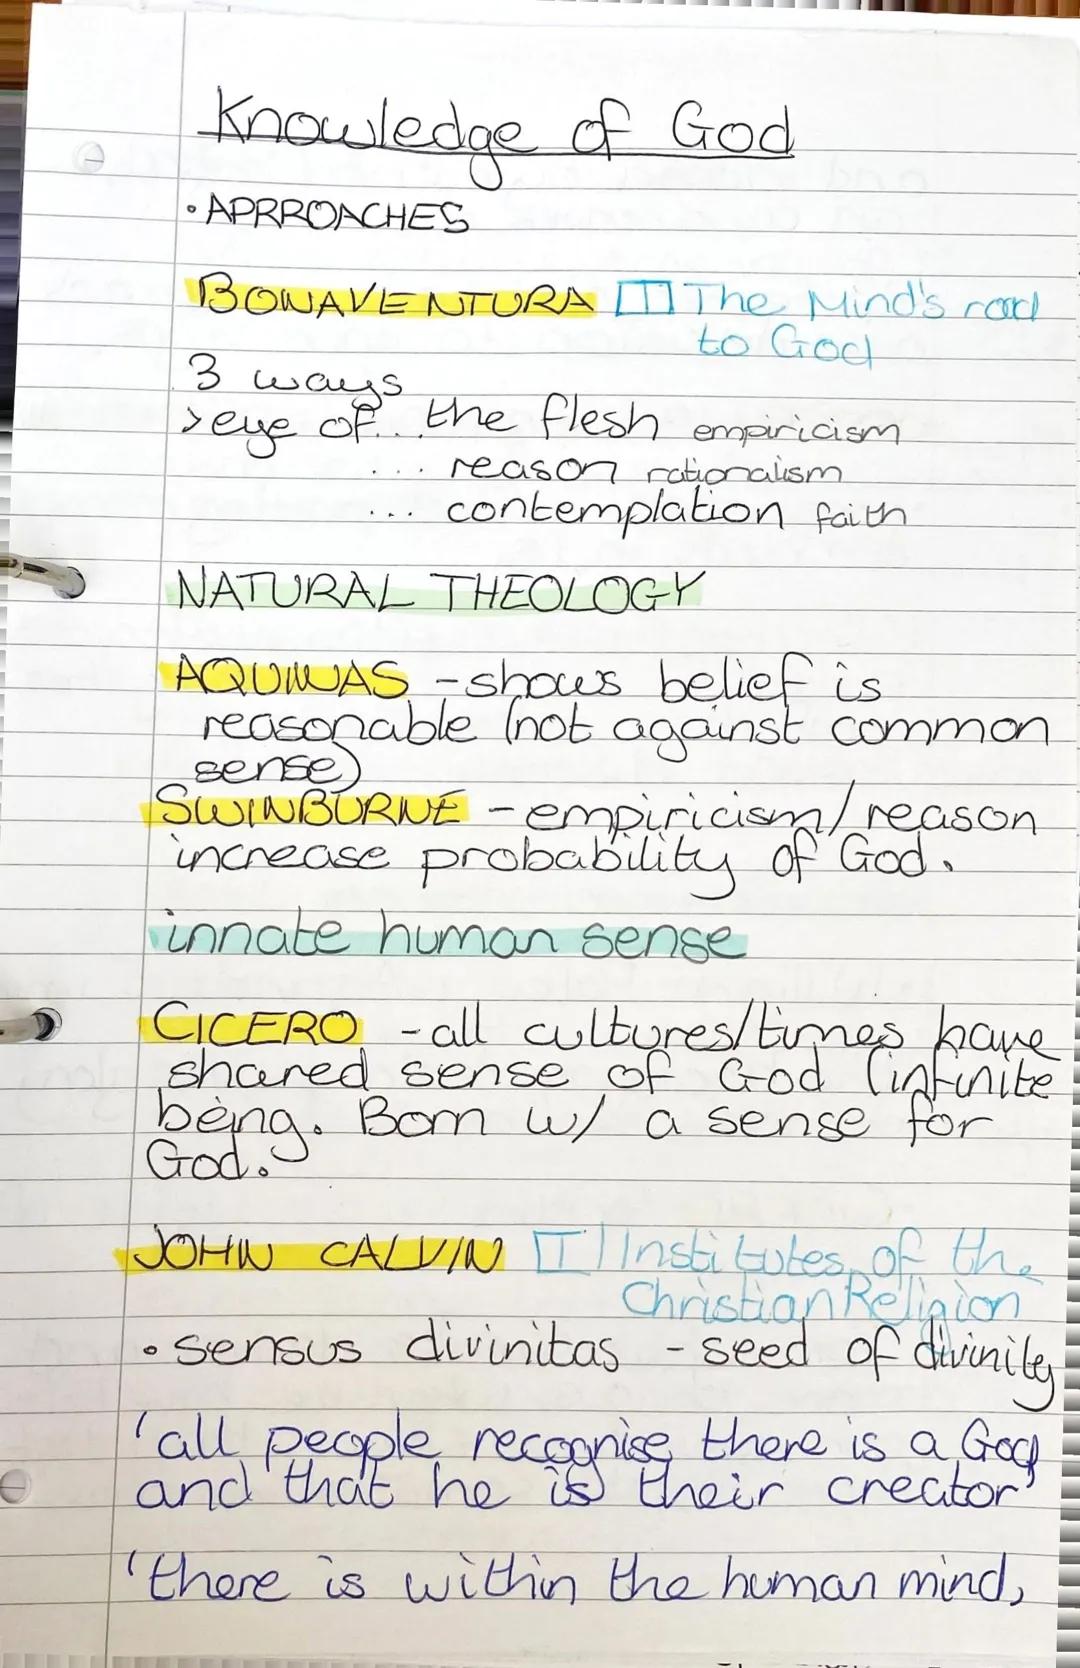 Knowledge of God
• APRROACHES
BONAVENTURA The Mind's road
to God
3 ways
> eye of... the flesh empiricism
... reason rationalism
... contemplation faith
NATURAL THEOLOGY
AQUINAS - shows belief is
reasonable (not against common
sense)
SWINBURNE - empiricism/reason
increase probability of God.
innate human sense
CICERO - all cultures/times have
shared sense of God (infinite
being. Born w/ a sense for
God.
JOHN CALVIN Institutes of the
Christian Religion
• sensus divinitas - seed of divinity
'all people recognise there is a God
and that he is their creator'
'there is within the human mind,